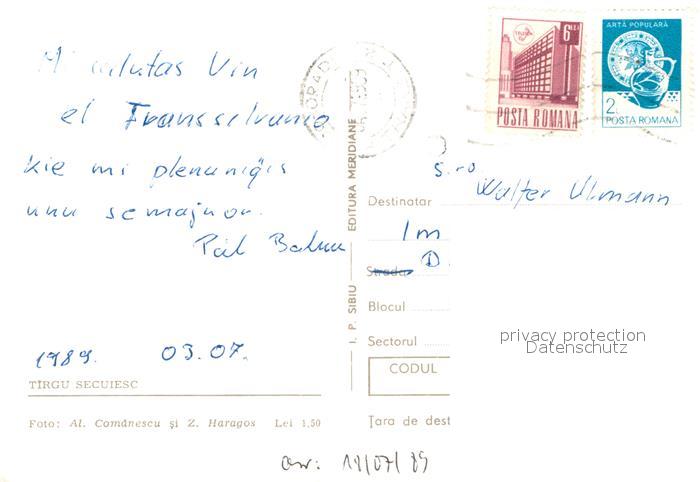 Mi salutas Vin
el Transsilvanio
kie mi plenumiĝis
unu semajnon.
Pál
1989. 03.07.
TÎRGU SECUIESC
Foto: Al. Comănescu și Z. Haragos Lei 1,50
I. P. SIBIU — EDITURA MERIDIANE
ORADEA
6 LEI
POSTA ROMANA
ARTĂ POPULARĂ
2L
POSTA ROMANA
S-ro
Destinatar Walter Ulmann
Im
Strada D
Blocul
Sectorul
CODUL
Țara de dest
privacy protection
Datenschutz
11/07/89